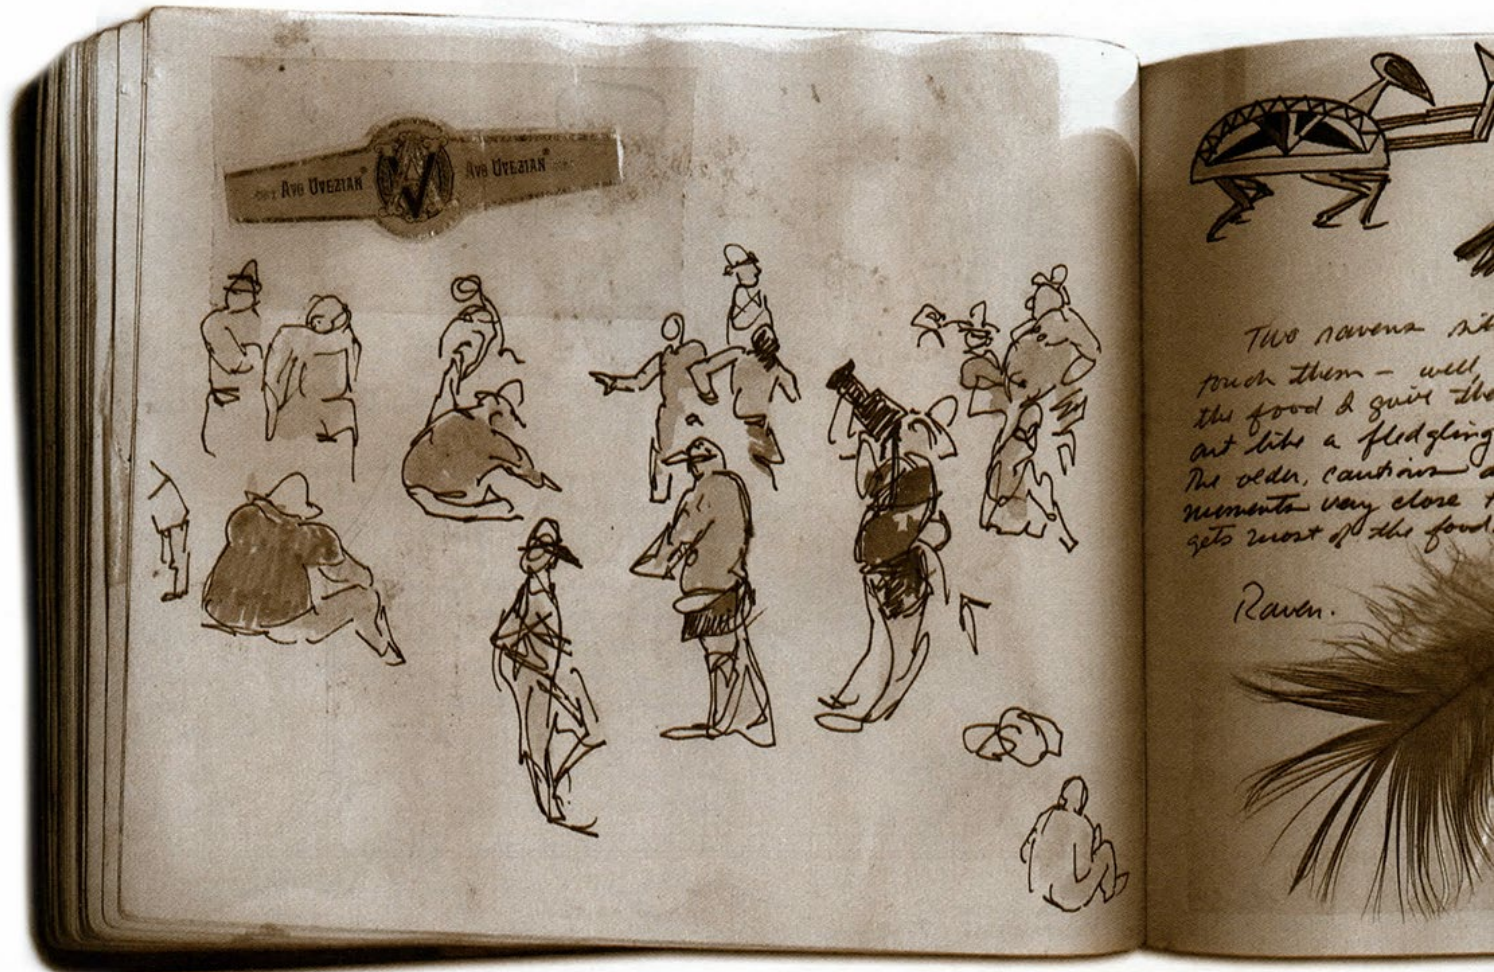 Avo Uvezian
Avo Uvezian
Two ravens sit
touch them – well,
the food I give the
act like a fledgling
The older, cautious a
moments very close t
gets most of the food.
Raven.